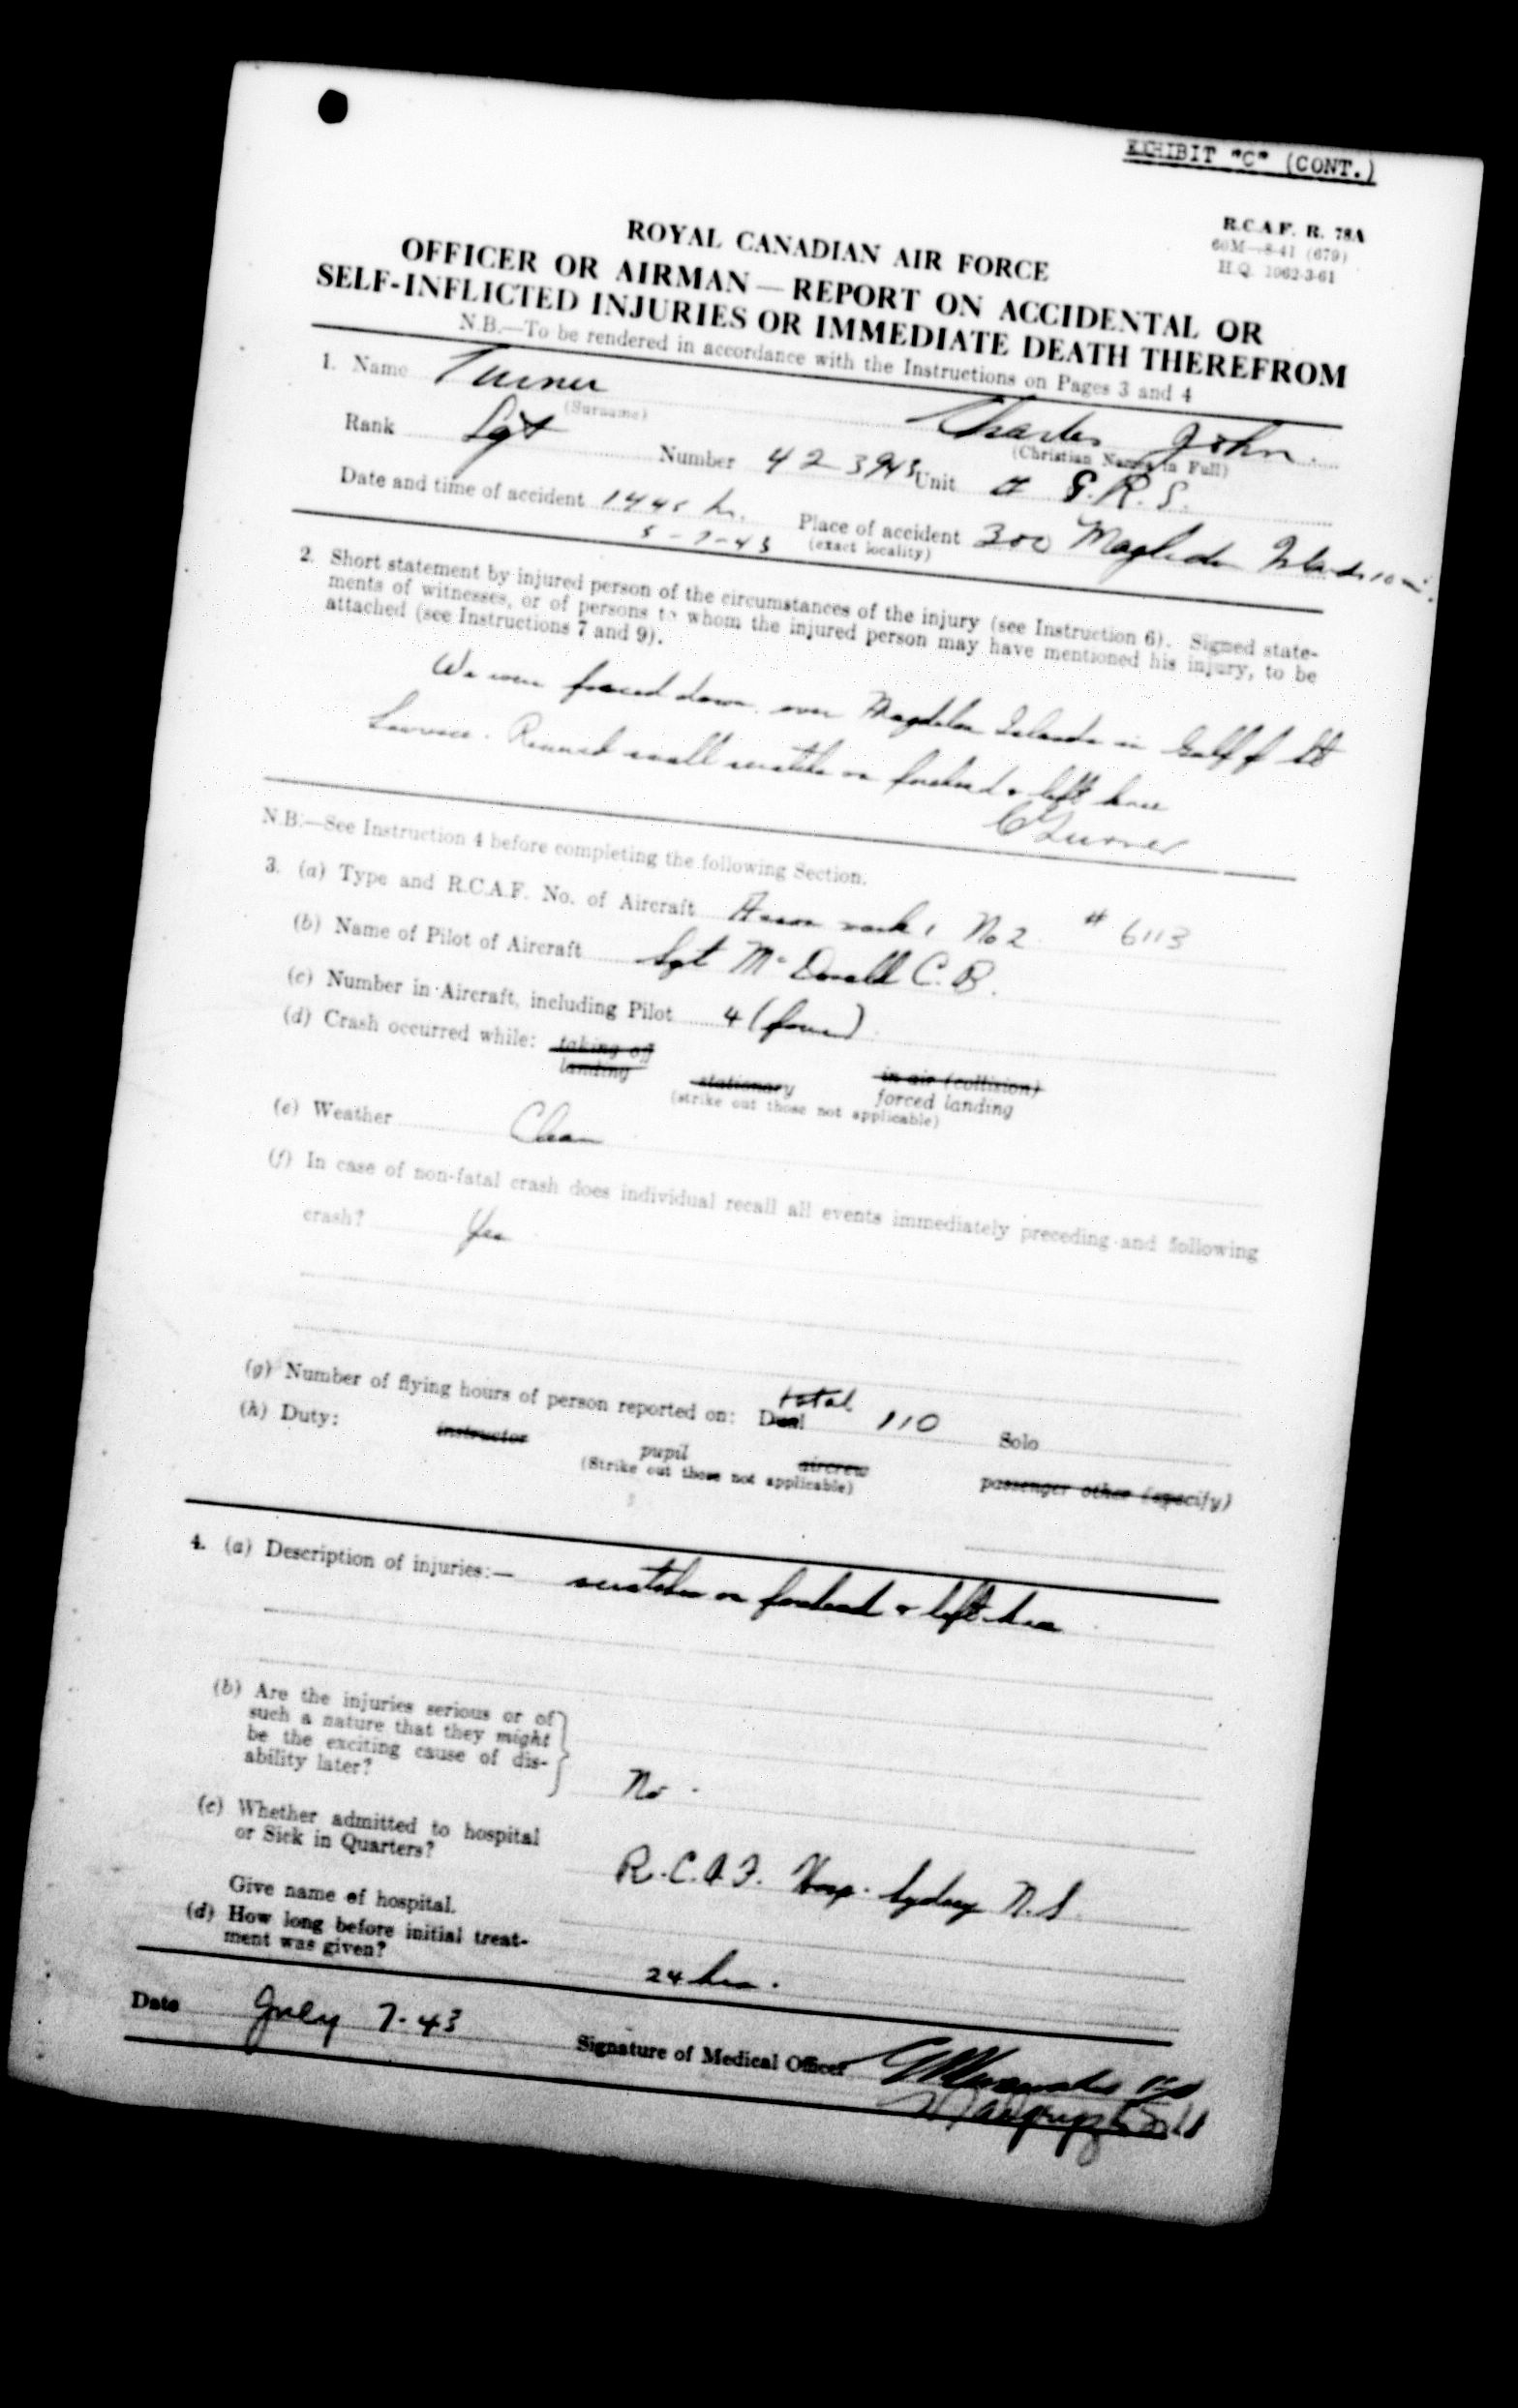 EXHIBIT "C" (CONT.)
R.C.A.F. R. 78A
60M—8-41 (679)
H.Q. 1062-3-61
ROYAL CANADIAN AIR FORCE
OFFICER OR AIRMAN—REPORT ON ACCIDENTAL OR
SELF-INFLICTED INJURIES OR IMMEDIATE DEATH THEREFROM
N.B.—To be rendered in accordance with the Instructions on Pages 3 and 4
1. Name Turner Charles John.
(Surname) (Christian Names in Full)
Rank Sgt Number 423943 Unit G.R.S.
Date and time of accident 1445 hr. Place of accident 300 Magdalen Islands
5-7-43 (exact locality)
2. Short statement by injured person of the circumstances of the injury (see Instruction 6). Signed state-
ments of witnesses, or of persons to whom the injured person may have mentioned his injury, to be
attached (see Instructions 7 and 9).
We were forced down over Magdalen Islands in Gulf of St
Lawrence. Received small scratches on forehead & left knee
C Turner
N.B.—See Instruction 4 before completing the following Section.
3. (a) Type and R.C.A.F. No. of Aircraft Anson mark 1 No 2 # 6113
(b) Name of Pilot of Aircraft Sgt McDonald C. B.
(c) Number in Aircraft, including Pilot 4 (four)
(d) Crash occurred while: taking off in air (collision)
landing stationary forced landing
(strike out those not applicable)
(e) Weather Clear
(f) In case of non-fatal crash does individual recall all events immediately preceding and following
crash? Yes
(g) Number of flying hours of person reported on: Dual total 110 Solo
(h) Duty: instructor pupil aircrew passenger other (specify)
(Strike out those not applicable)
4. (a) Description of injuries:— scratches on forehead & left knee
(b) Are the injuries serious or of
such a nature that they might
be the exciting cause of dis-
ability later? No.
(c) Whether admitted to hospital
or Sick in Quarters?
R.C.A.F. Hosp. Sydney N.S.
Give name of hospital.
(d) How long before initial treat-
ment was given? 24 hrs.
Date July 7-43 Signature of Medical Officer